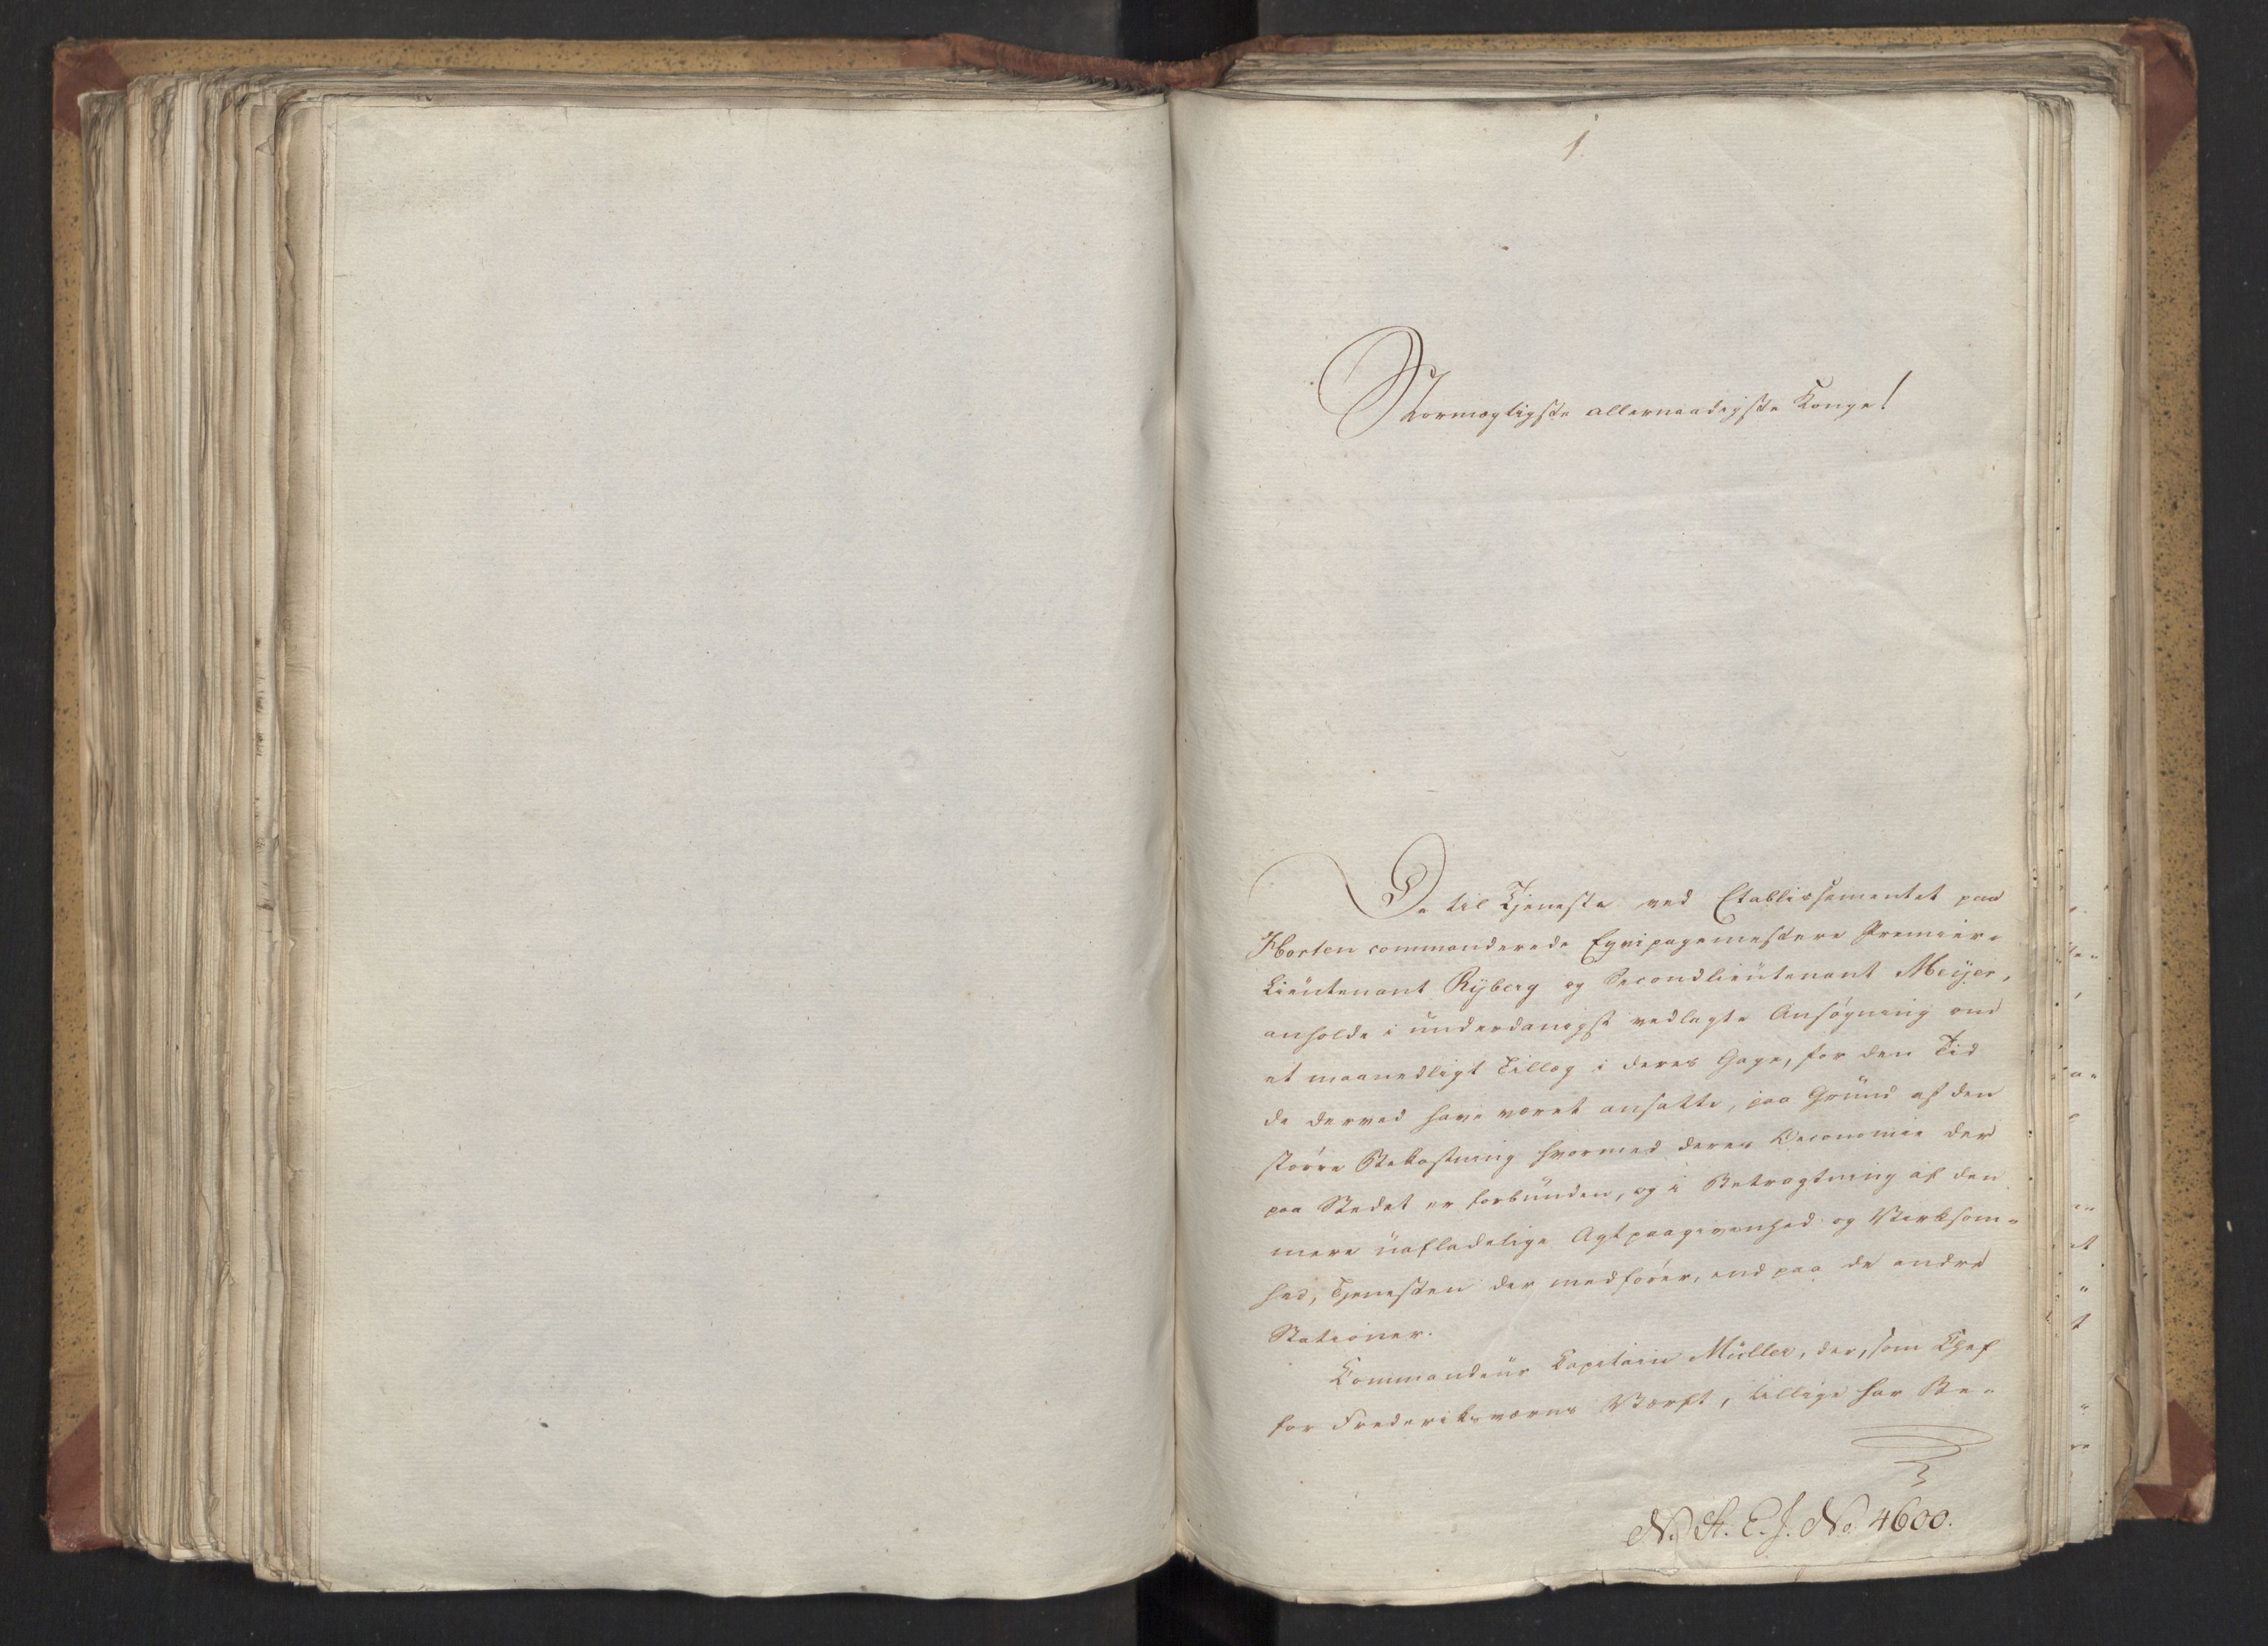 1.
Stormægtigste allernaadigste Konge!
De til Tjeneste ved Etablissementet paa
Horten commanderede Eqvipagemestere Premier-
Lieutenant Ryberg og Secondlieutenant Meyer,
anholde i underdanigst vedlagte Ansøgning om
et maanedligt Tillæg i deres Gage, for den Tid
de derved have været ansatte, paa Grund af den
større Bekostning hvormed deres Oeconomie der
paa Stedet er forbunden, og i Betragtning af den
mere uafladelige Agtpaagivenhed og Virksom-
hed, Tjenesten der medfører, end paa de andre
Stationer.
Commandeur Capitain Müller, der, som Chef
for Frederiksværns Værft, tillige har Be-
N. St. E. J. No 4600.